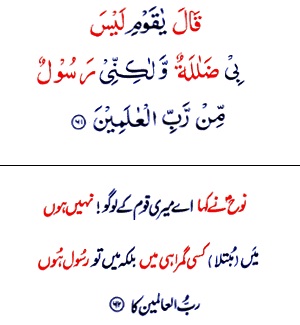 قَالَ يٰقَوْمِ لَيْسَ
بِىْ ضَلٰلَةٌ وَّلٰكِنِّىْ رَسُوْلٌ
مِّنْ رَّبِّ الْعٰلَمِيْنَ ﴿۶۱﴾
نوحؑ نے کہا اے میری قوم کے لوگو! نہیں ہوں
میں (مُبتلا) کسی گمراہی میں بلکہ میں تو رسُول ہُوں
ربُّ العالمین کا